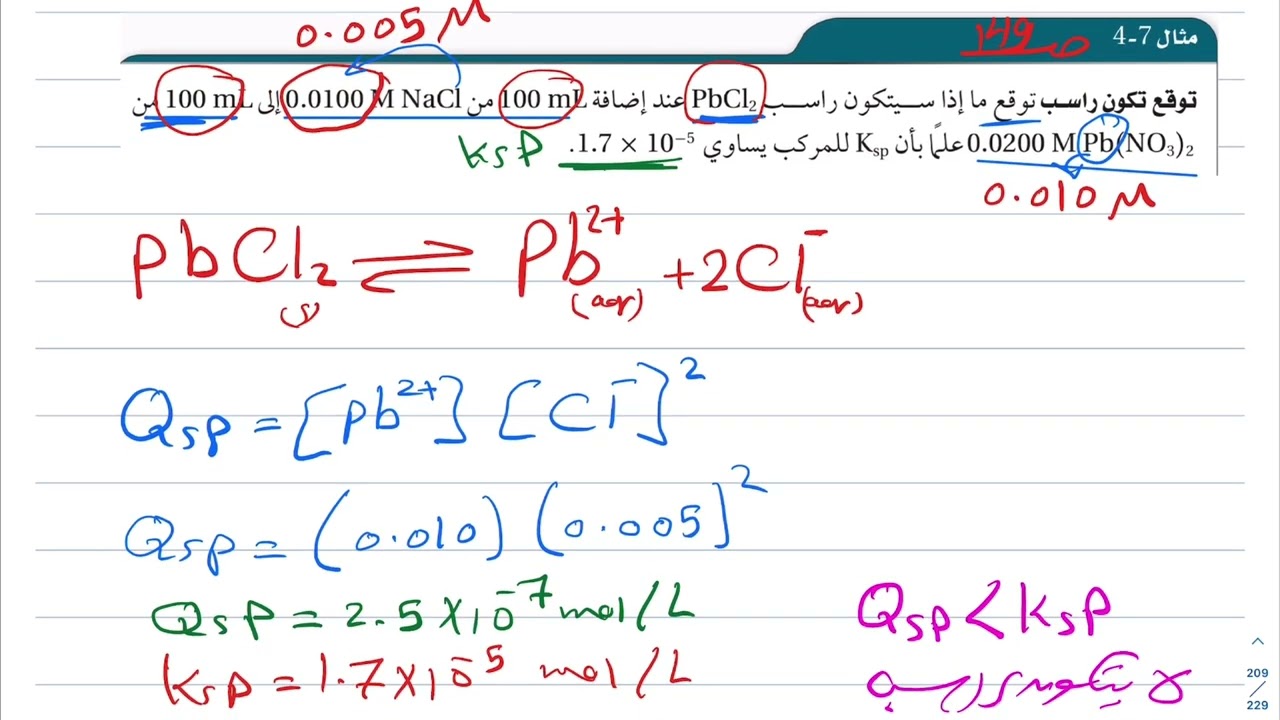 0.005 M
مثال 7-4 ص 149
توقع تكون راسب توقع ما إذا سيتكون راسب PbCl₂ عند إضافة 100 mL من 0.0100 M NaCl إلى 100 mL من
0.0200 M Pb(NO₃)₂ علمًا بأن Ksp للمركب يساوي 1.7 × 10⁻⁵.
Ksp
0.010 M
PbCl₂(s) ⇌ Pb²⁺(aq) + 2Cl⁻(aq)
Qsp = [Pb²⁺] [Cl⁻]²
Qsp = (0.010) (0.005]²
Qsp = 2.5 × 10⁻⁷ mol/L
Ksp = 1.7 × 10⁻⁵ mol/L
Qsp < Ksp
لا يتكون راسب
209
229